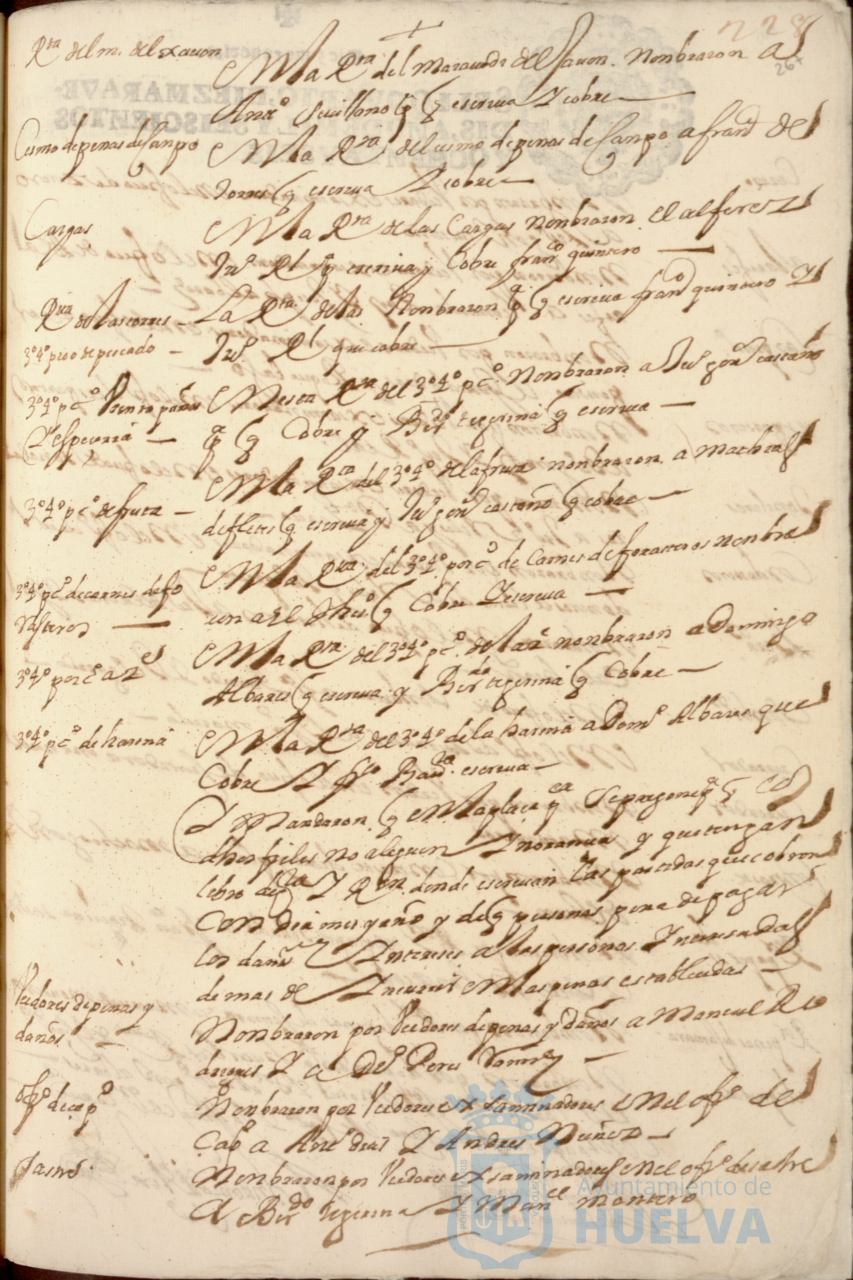 228
264
Rta del m. del xavon
En la Rta del maravedi del Javon. Nonbraron a
Anto Sevillano q escriva Y cobre
Cismo de penas del Canpo
En la Rta del cismo de penas del Canpo a franco de
torres q escriva Y cobre
Cargas
En la Rta de las Cargas Nonbraron el alferez
Juo Rl q escriva y Cobre franco quintero
Rta de las corres
La Rta de las Nonbraron q escriva franco quintero Y
3º 4º de pescado
Juo Rl que cobre
3º 4º p cº Viento paños
En esta Rta del 3º 4º p cº Nonbraron a Juo castaño
Y especeria
q Cobre y Berdo tegerina q escriva
3º 4º p cº de fruta
En la Rta del 3º 4º de la fruta nonbraron a Matheas
de fletes q escriva y Juo castaño q cobre
3º 4º p cº de carnes de fo
rasteros
En la Rta del 3º 4º por cº de Carnes de forasteros nonbra
ron a el dho q Cobre Y escriva
3º 4º por cº a
En la Rta del 3º 4º p cº nonbraron a Domingo
Albares q escriva y Berdo tegerina q Cobre
3º 4º p cº de harina
En la Rta del 3º 4º de la harina a Domo Albares que
Cobre Y escriva
Y Mandaron q En la plaça pca Se pregone
dhos fieles No aleguen Ynorancia y que tengan
libro de Y Rta donde escrivan las partidas que cobren
Con dia mes y año y de q personas pena de pagar
los daños Yntereses a las personas Ynteresadas
demas de Yncurrir En las penas establecidas
Veedores de penas y
daños
Nonbraron por Veedores de penas y daños a Manuel Ro
drigues Y a Peres
Nonbraron por Veedores exsaminadores En el ofo de
Capo a Anto dias Y Andres Nuñez
Sastre
Nonbraron por Veedores exsaminadores En el ofo de sastre
A Berdo tegerina Y Manel Montero
Ayuntamiento de
HUELVA